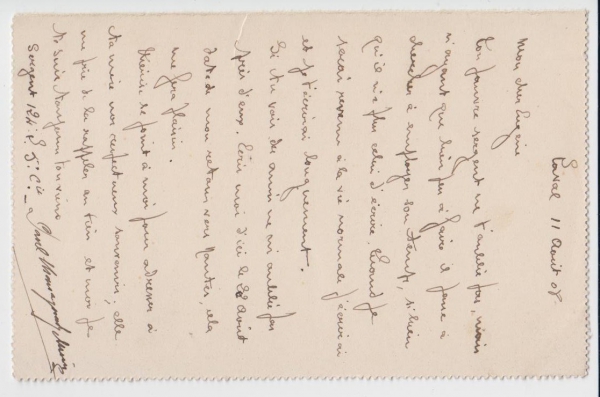 Laval 11 Août 08
Mon cher Eugène
Ton pauvre sergent ne t'oublie pas, mais
n'ayant que bien peu à faire il passe à
chercher à employer son temps, si bien
qu'il n'a plus celui d'écrire. Quand je
serai revenu à la vie normale j'écrirai
et je t'écrirai longuement.
Si tu vois des amis ne m'oublie pas
près d'eux. Écris moi d'ici le 22 Août
date de mon retour vers Nantes, cela
me fera plaisir.
se joint à moi pour adresser à
ta mère nos respectueux souvenirs, elle
me prie de la rappeler au tien et moi je
te suis toujours
Sergent 124e 5e Cie